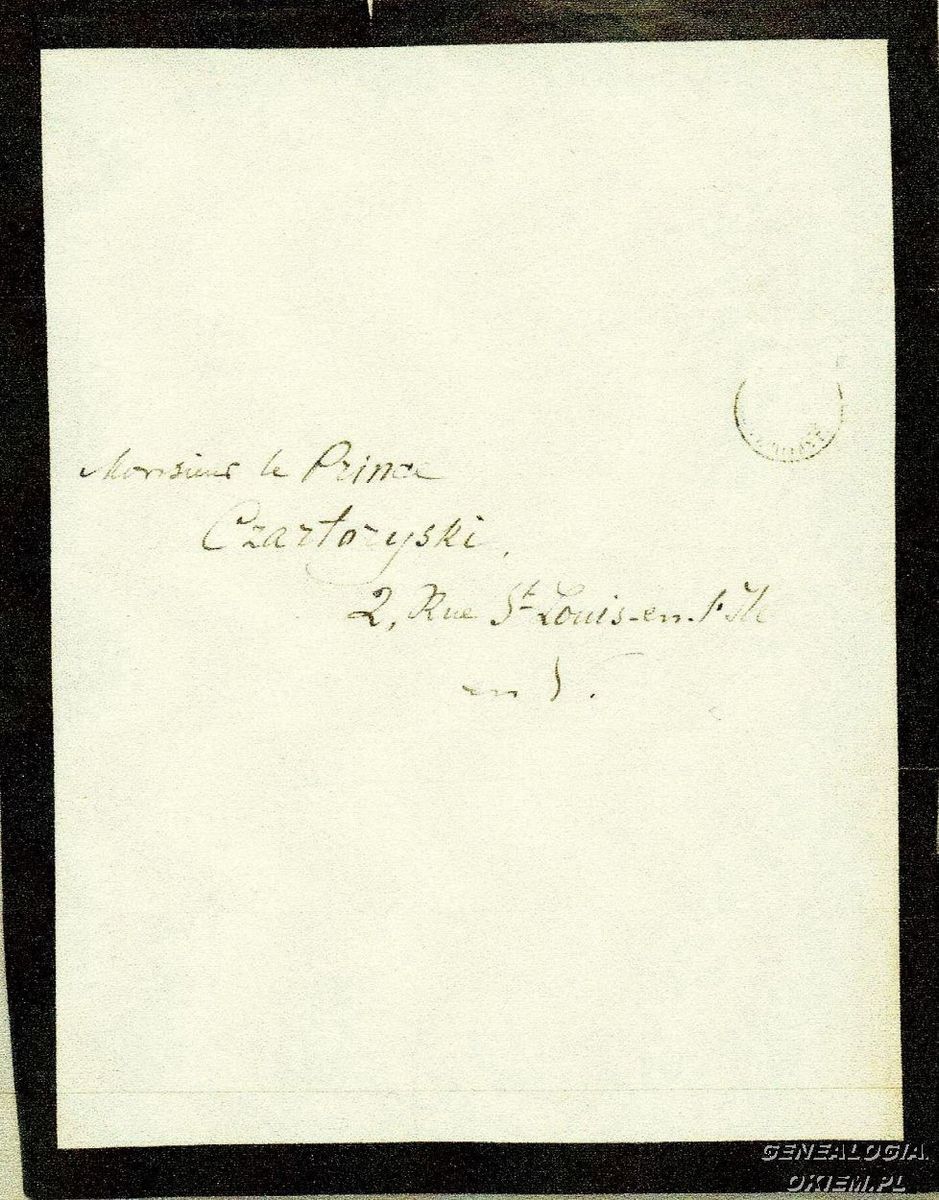 Monsieur le Prince
Czartoryski,
2, Rue St Louis-en-l'Ile
en
GENEALOGIA.
OKIEM.PL